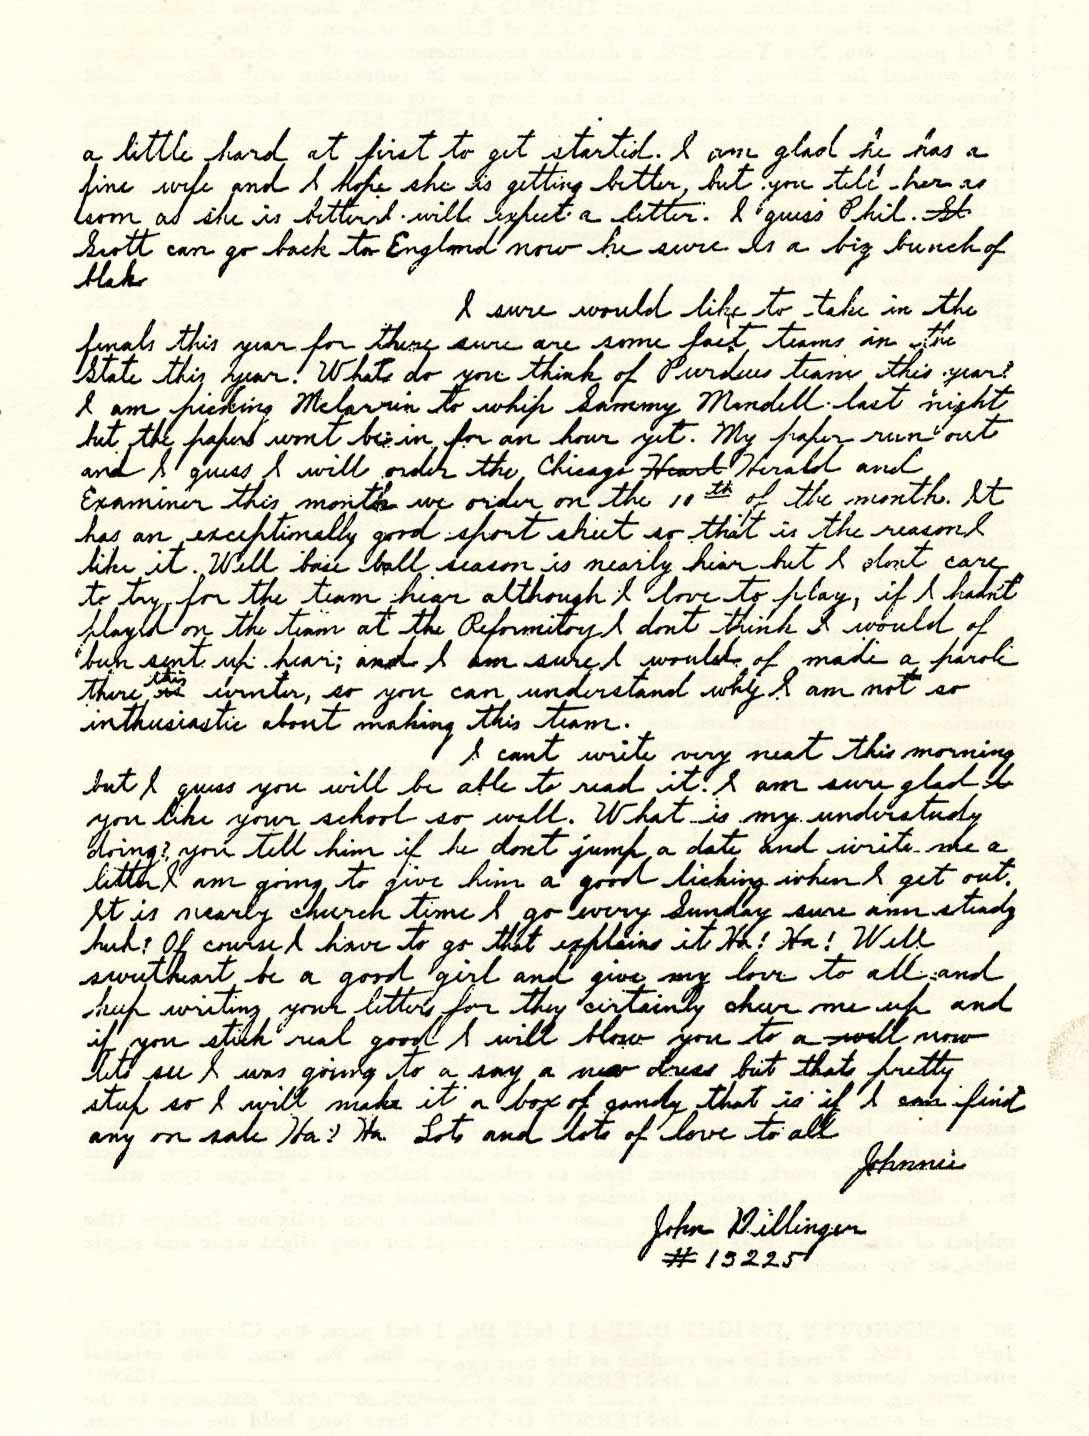 a little hard at first to get startid. I am glad he has a
fine wife and I hope she is getting better, but you tell her as
soon as she is better I will expect a letter. I guess Phil. St
Scott can go back to England now he sure is a big bunch of
blak
I sure would like to take in the
finals this year for there sure are some fast teams in the
State this year. What do you think of Purdues team this year?
I am picking Mclarrin to whip Sammy Mandell last night
but the papers wont be in for an hour yet. My paper run out
and I guess I will order the Chicago Hearl Herald and
Examiner this month we order on the 10th of the month. It
has an exceptionally good sport sheet so that is the reason I
like it. Well base ball season is nearly hear but I dont care
to try for the team hear although I love to play, if I hadn't
played on the team at the Reformitory I dont think I would of
bun sent up hear; and I am sure I would of made a parole
there this winter, so you can understand why I am not so
inthusiastic about making this team.
I cant write very neat this morning
but I guess you will be able to read it. I am sure glad
you like your school so well. What is my understudy
doing? you tell him if he dont jump a date and write me a
letter I am going to give him a good licking when I get out.
It is nearly church time I go every Sunday sure am steady
huh? Of course I have to go that explains it Ha! Ha! Well
sweetheart be a good girl and give my love to all and
keep writing your letters for they certainly cheer me up and
if you stick real good I will blow you to a well now
lets see I was going to a say a new dress but thats pretty
steep so I will make it a box of candy that is if I can find
any on sale Ha! Ha Lots and lots of love to all
Johnnie
John Dillinger
# 13225